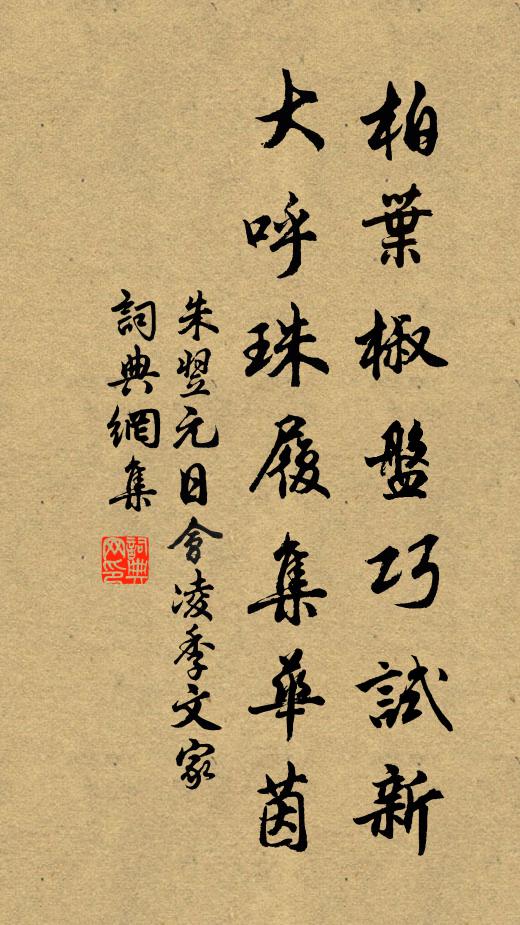 柏葉椒盤巧試新
大呼珠履集華茵
朱翌元日會凌季文家
詞典網集
詞典網印